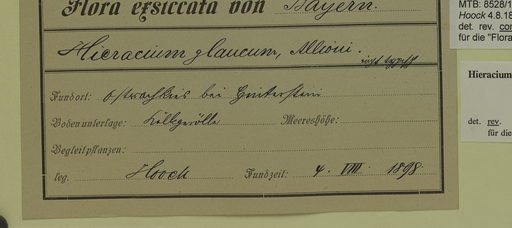 Flora exsiccata von Bayern.
Hieracium glaucum, Allioni.
nicht typisch
Fundort: Ostrachkies bei Hinterstein
Bodenunterlage: Kalkgerölle Meereshöhe:
Begleitpflanzen:
leg. Hoock Fundzeit: 4. VIII. 1898
MTB: 8528/1
Hoock 4.8.18
det. rev. con
für die "Flora
Hieracium
det. rev.
für die